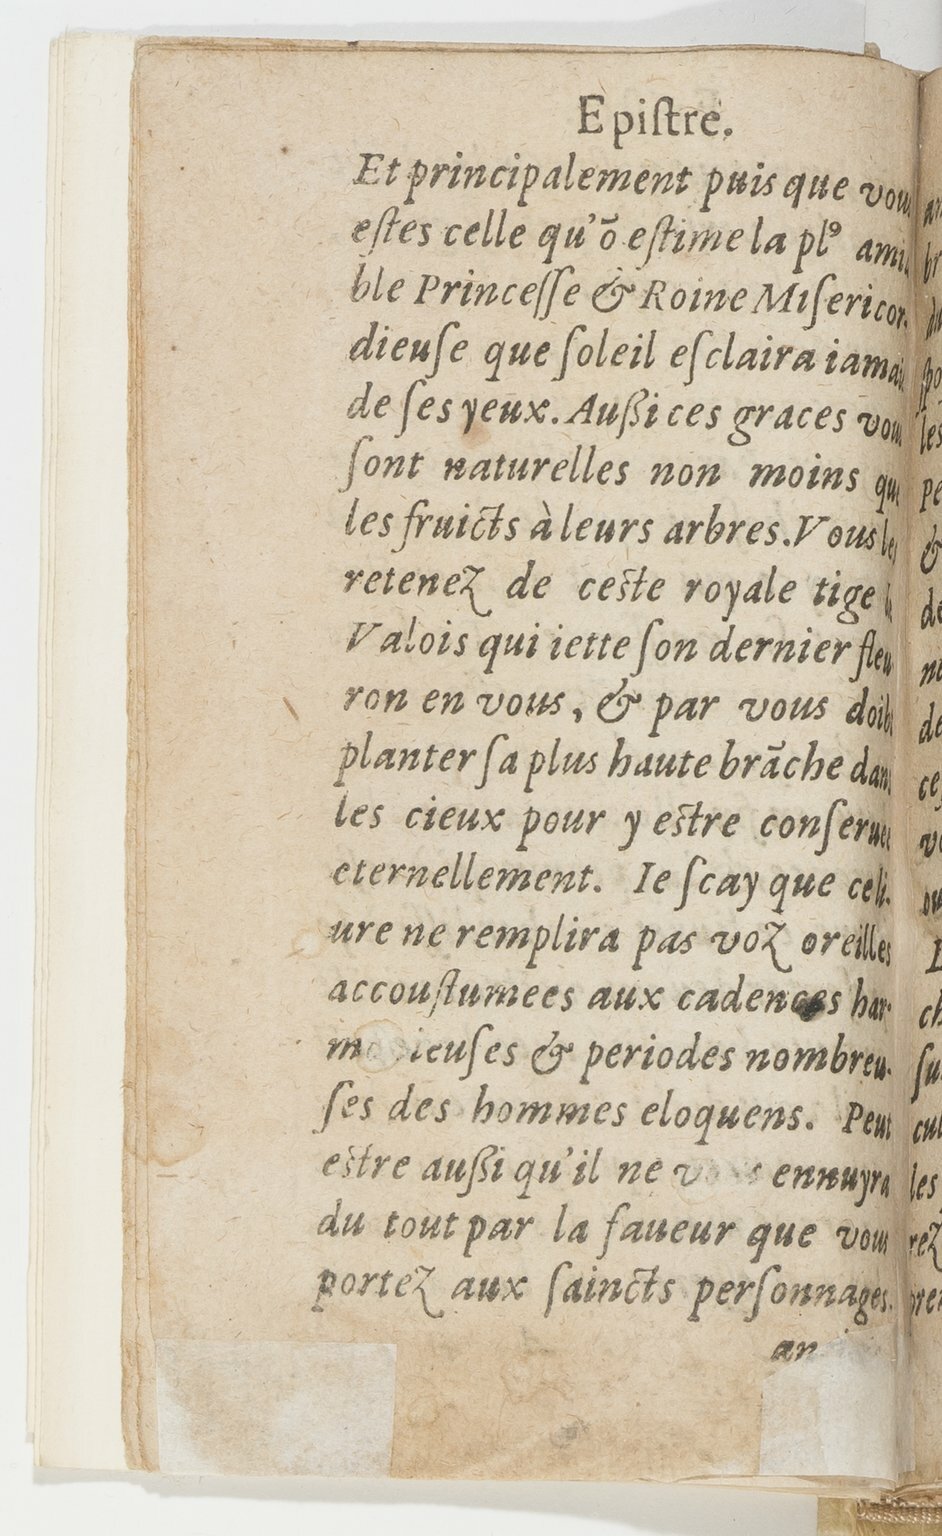 Epiſtre.
Et principalement puis que vous
eſtes celle qu'õ eſtime la plꝰ amia
ble Princeſſe & Roine Miſericor-
dieuſe que ſoleil eſclaira iamais
de ſes yeux. Außi ces graces vous
ſont naturelles non moins que
les fruicts à leurs arbres. Vous les
retenez de ceſte royale tige
Valois qui iette ſon dernier fleu
ron en vous, & par vous doibt
planter ſa plus haute brãche dans
les cieux pour y eſtre conſeruee
eternellement. Ie ſcay que ce li-
ure ne remplira pas voz oreilles
accouſtumees aux cadences har-
& periodes nombreu-
ſes des hommes eloquens. Peut
eſtre außi qu'il ne vous ennuyra
du tout par la faueur que vous
portez aux ſaincts perſonnages.